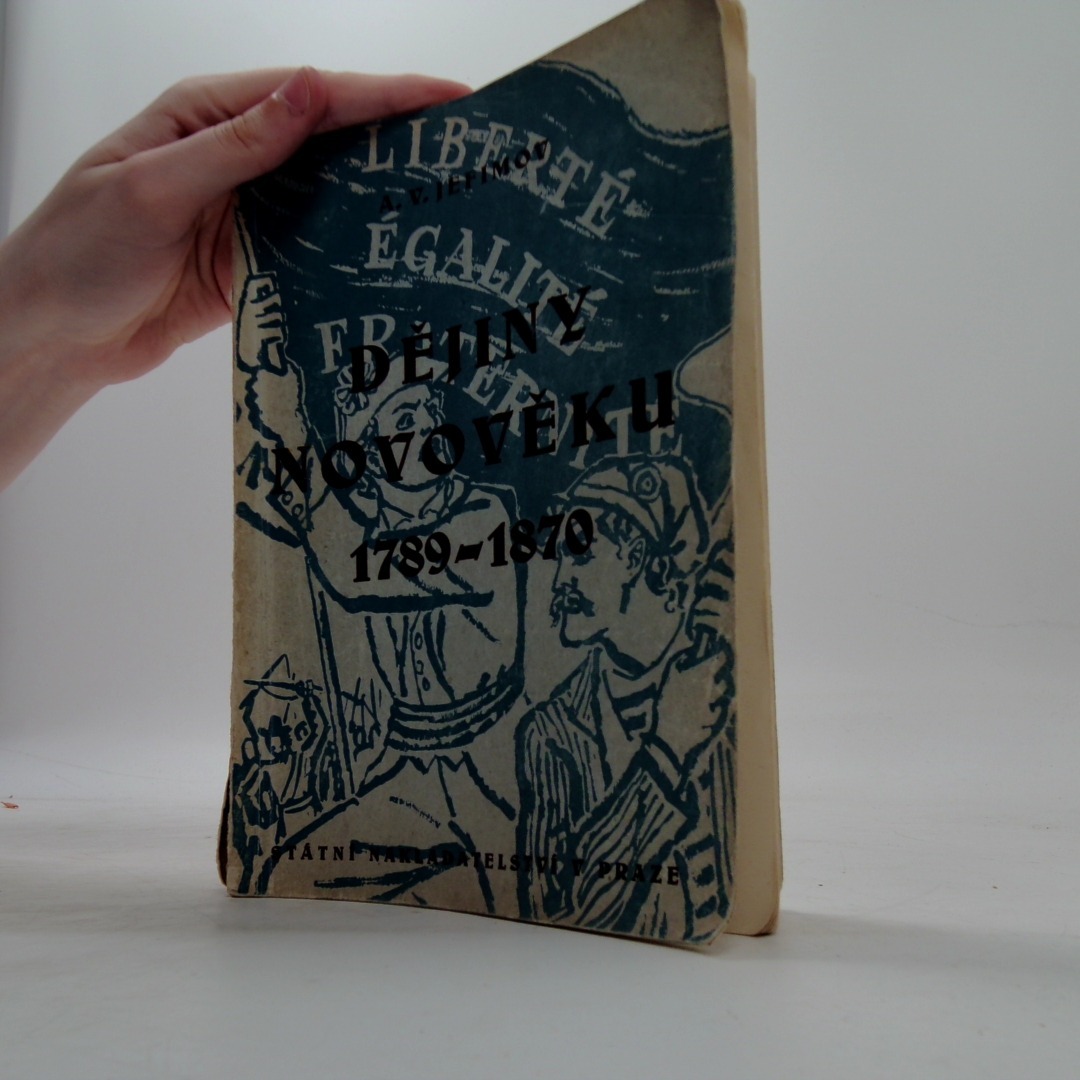 LIBERTÉ
A. V. JEFIMOV
ÉGALITÉ
FRATERNITÉ
DĚJINY
NOVOVĚKU
1789-1870
STÁTNÍ NAKLADATELSTVÍ V PRAZE